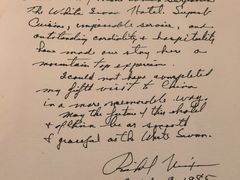 The White Swan Hotel. Superb
Cuisine, impeccable service, and
outstanding cordiality & hospitality
have made our stay here a
mountain top experience.
I could not have completed
my fifth visit to China
in a more memorable way.
May the future of this hotel
& of China be as smooth
& graceful as the White Swan.
1985